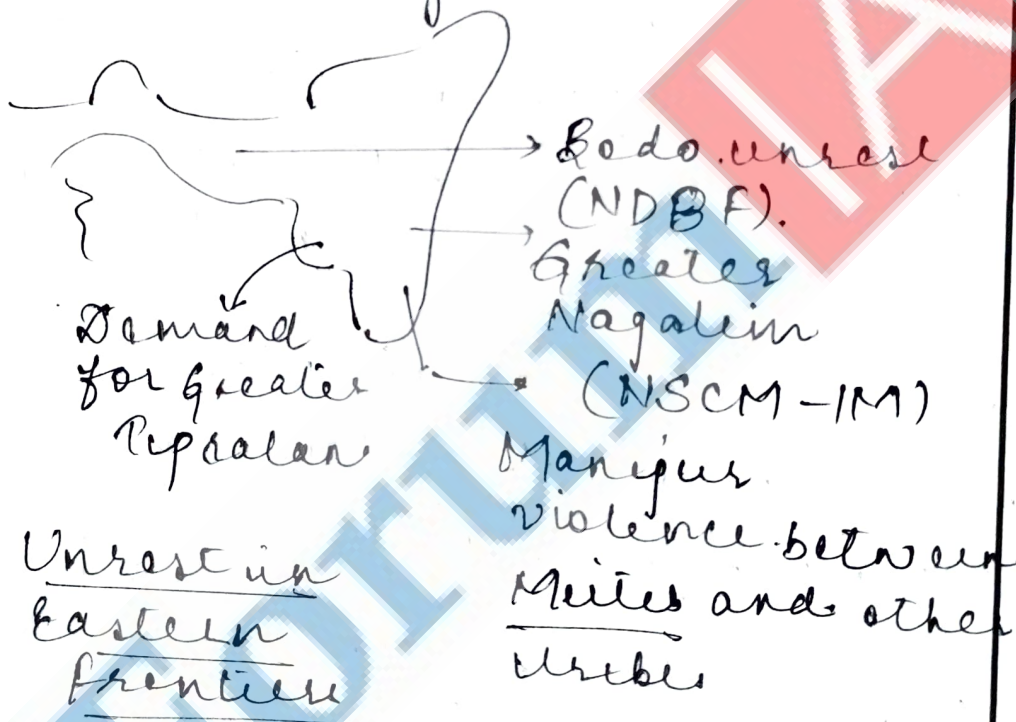 Bodo unrest
(NDBF).
Greater
Nagalim
(NSCM-IM)
Manipur
violence between
Meites and other
tribes
Demand
for Greater
Tipraland
Unrest in
Eastern
frontiers
Forum IA